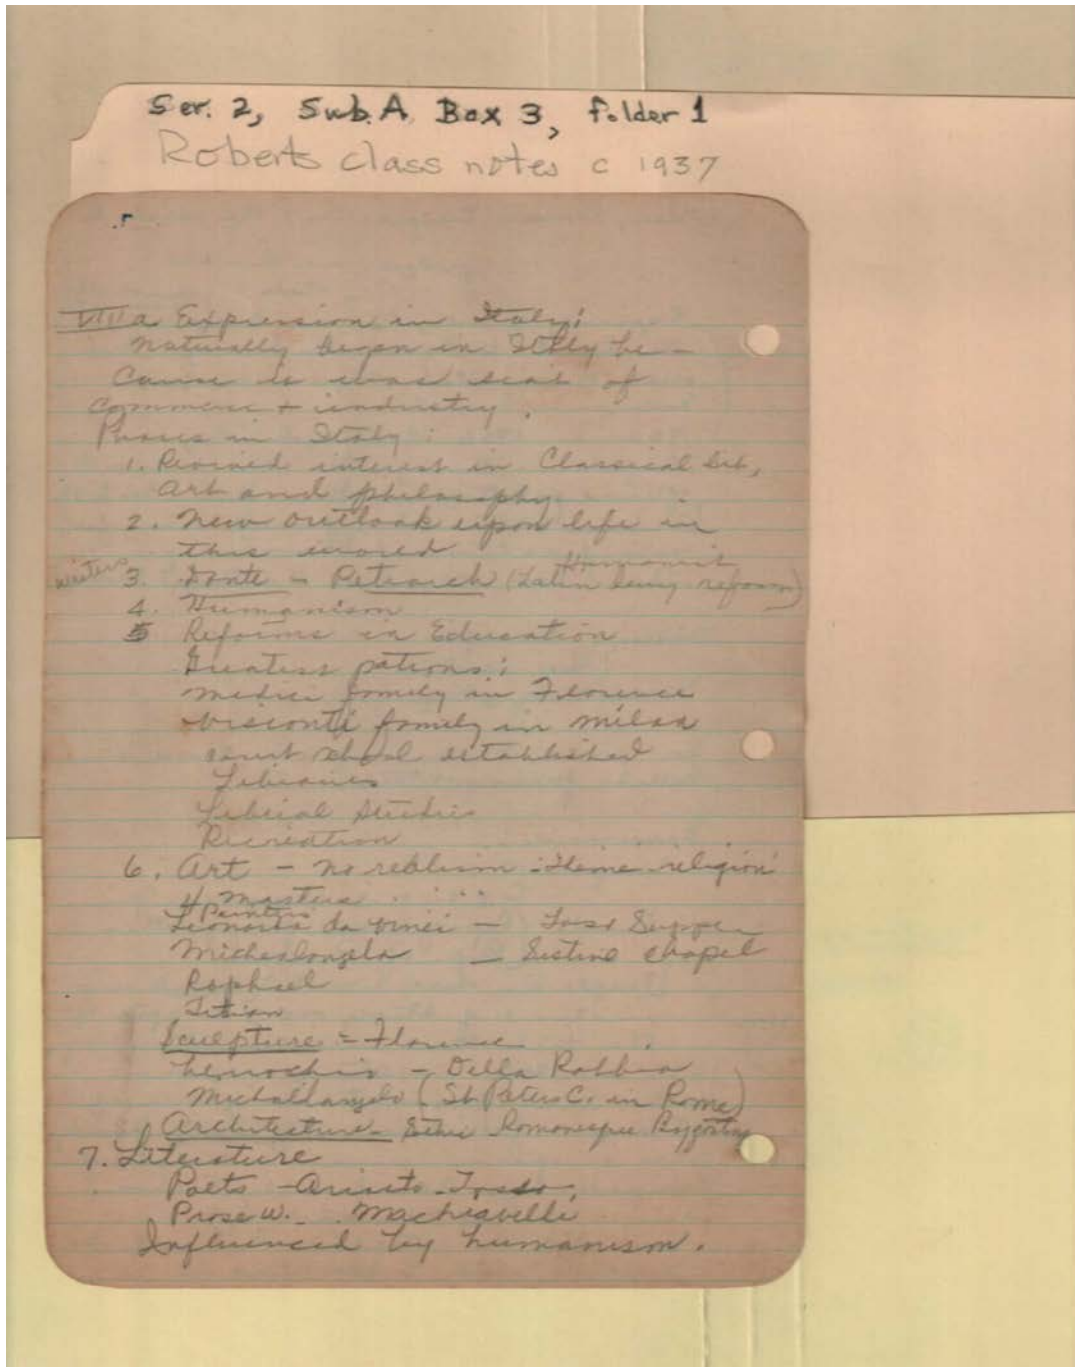 Ser. 2, Sub. A, Box 3, Folder 1
Roberts class notes c 1937
VIII a Expression in Italy:
Naturally began in Italy be-
cause it was seat of
commerce + industry.
Phases in Italy:
1. Revived interest in Classical Lit,
art and philosophy.
2. New outlook upon life in
this world
Humanist
writers 3. Dante - Petrarch (Latin reform)
4. Humanism
5 Reforms in Education
Greatest patrons:
Medici family in Florence
Visconti family in Milan
court school established
Libraries
Liberal Studies
Recreation
6. Art - no realism - theme - religion
4 Masters
Painters
Leonardo da Vinci - Last Supper
Michealangelo - Sistine chapel
Raphael
Titian
Sculpture = Florence
- Della Robbia
Michaelangelo (St. Peters C. in Rome)
Architecture - Romanesque
7. Literature
Poets - Ariosto - Tasso,
Prose w. - Machiavelli
Influenced by humanism.